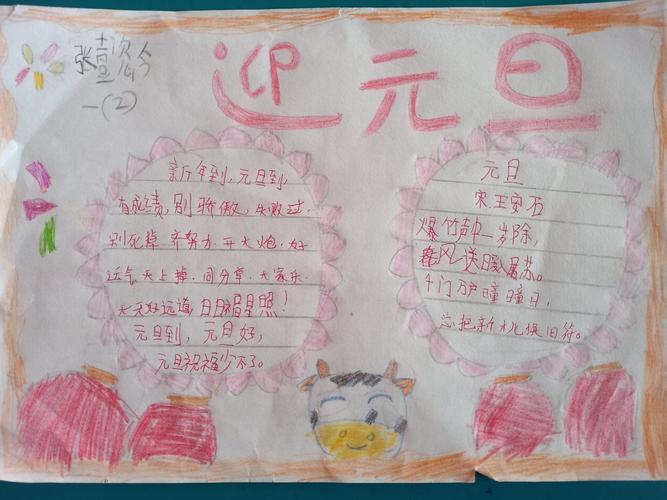 迎元旦
张壹
一(2)
新年到，元旦到
有成绩，别骄傲，失败过，
别死掉，齐努力，开大炮，好
运气，天上掉，同分享，大家乐，
天天好运道，日日福星照！
元旦到，元旦好，
元旦祝福少不了。
元旦
宋王安石
爆竹声中一岁除，
春风送暖屠苏。
千门万户曈曈日，
总把新桃换旧符。